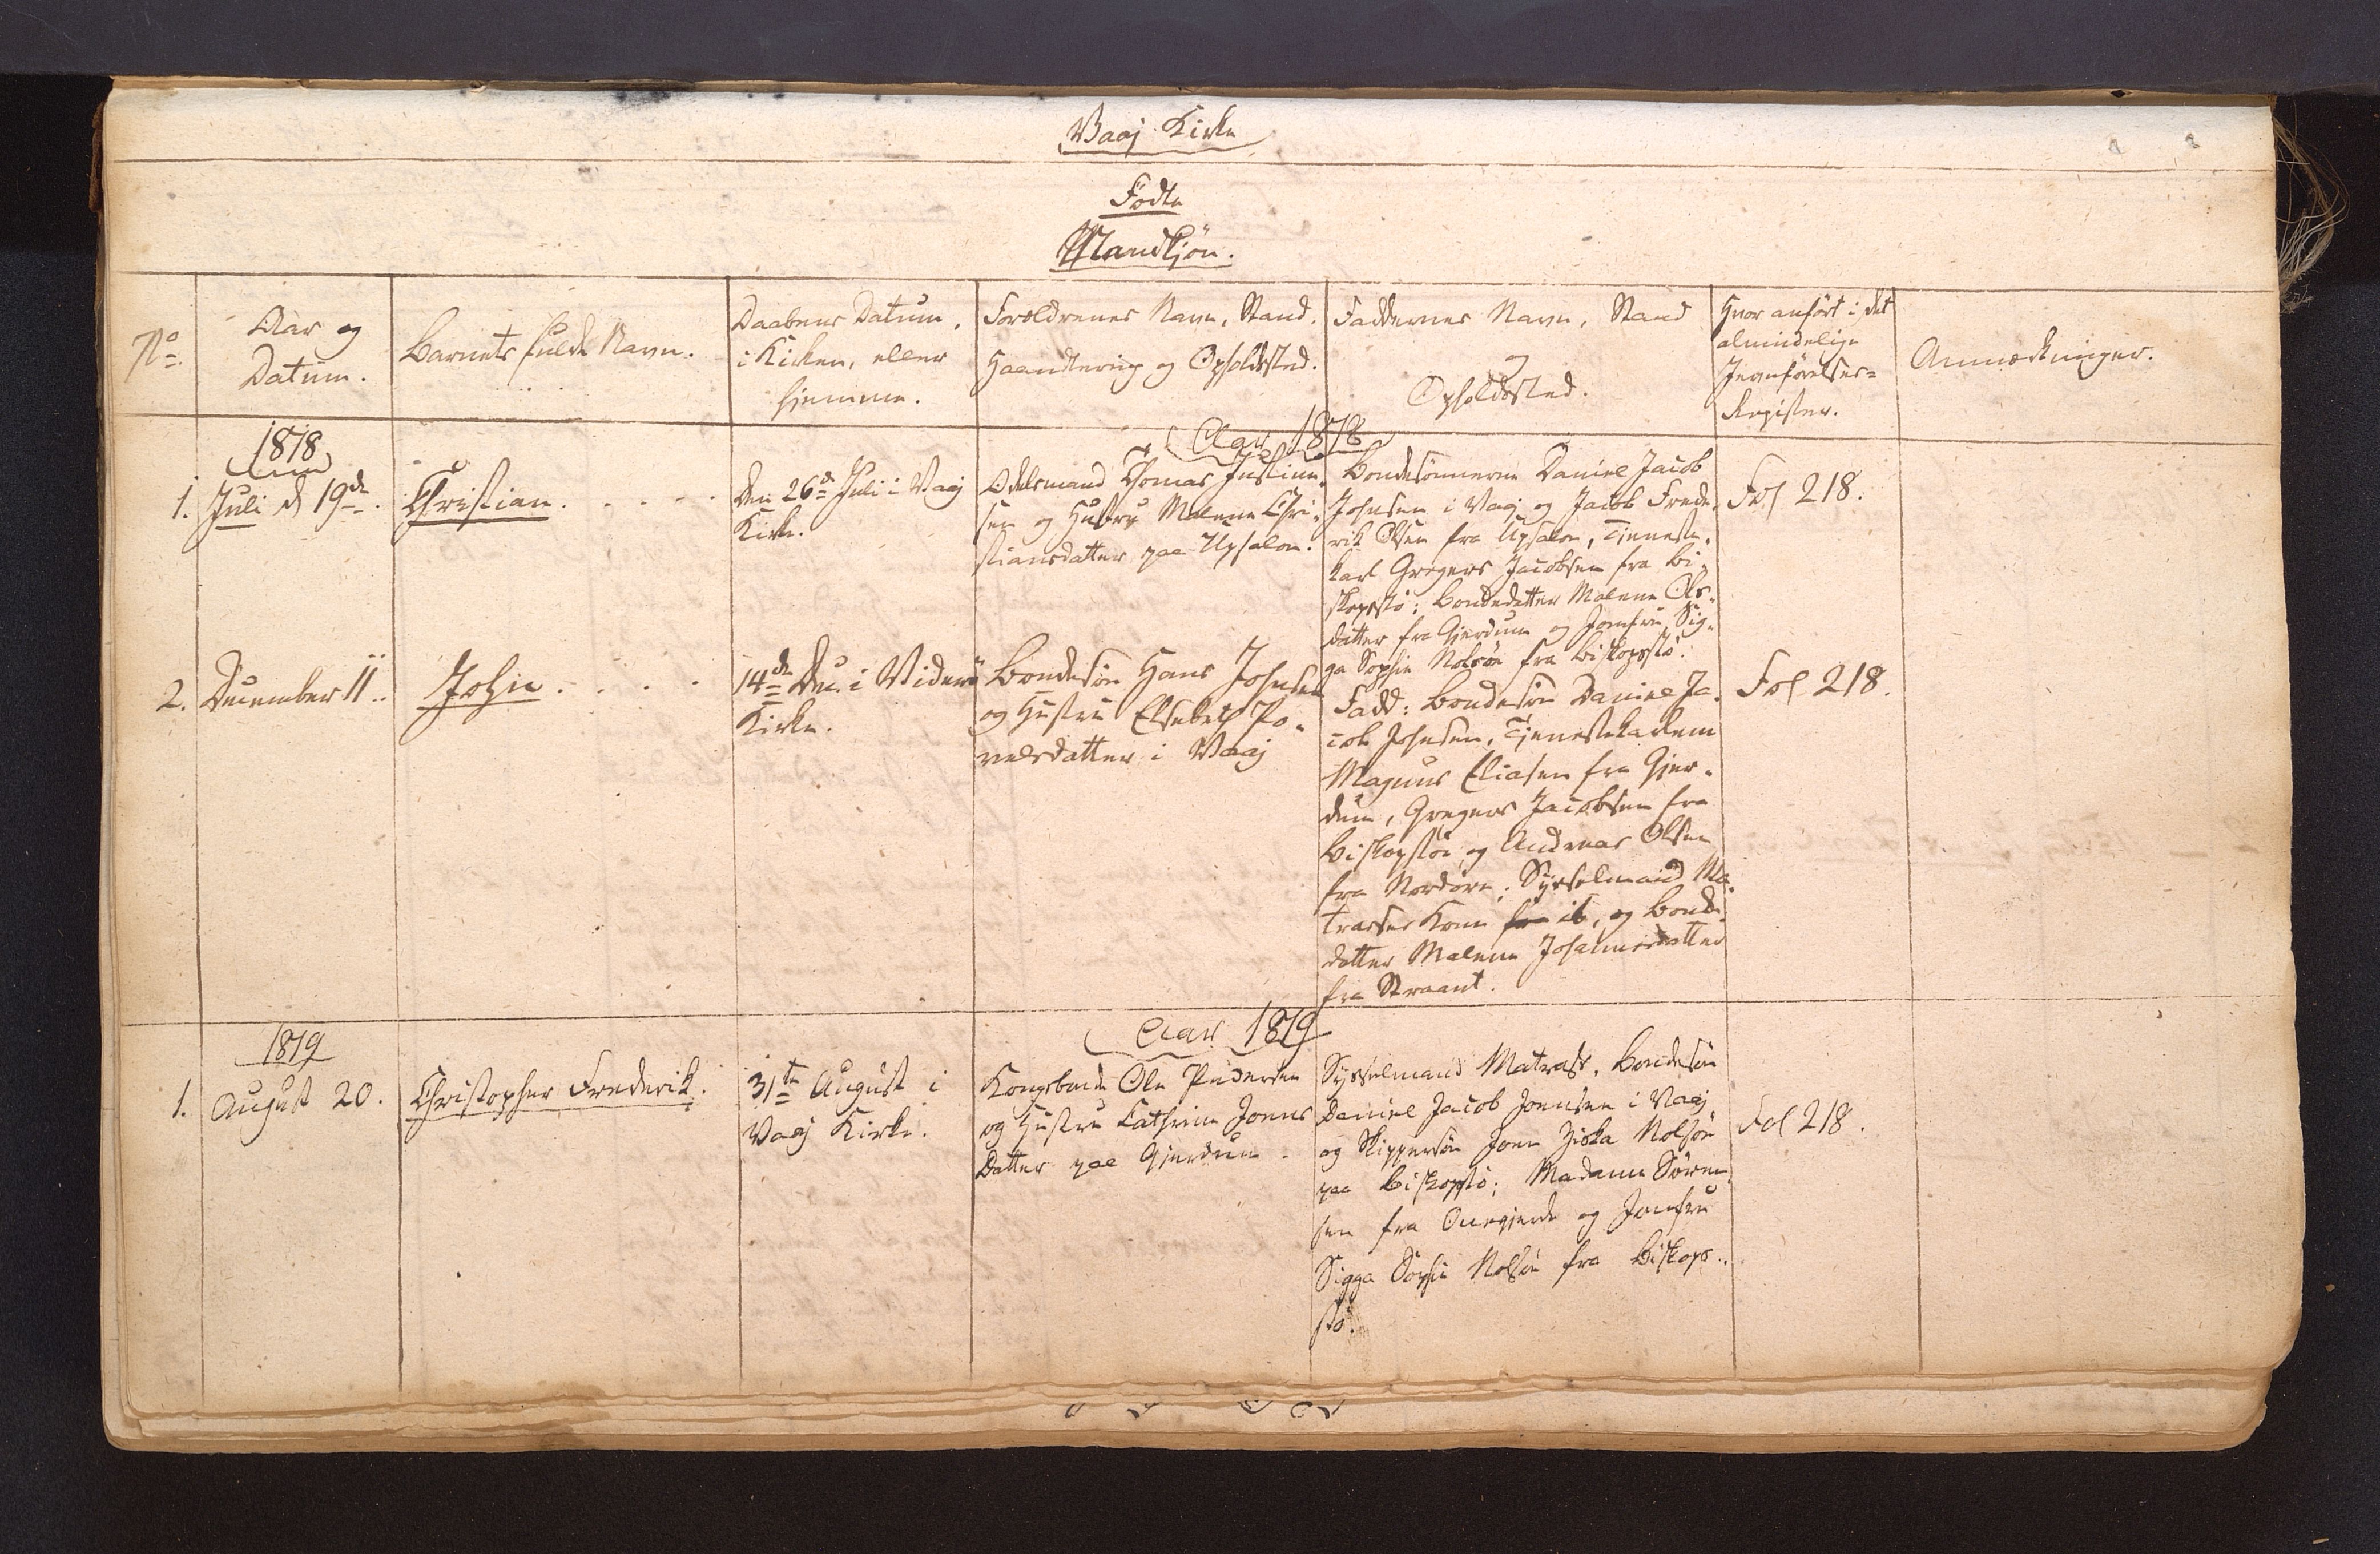 Vaaj Kirke
Födte
Mandkjön.
No
Aar og
Datum.
Barnets fulde Navn.
Daabens Datum,
i Kirken, eller
hjemme.
Forældrenes Navn, Stand,
Haandtering og Opholdssted.
Faddernes Navn, Stand
og
Opholdssted.
Hvor anfört i det
almindelige
Jevnförelses-
Register.
Anmærkninger.
Aar 1818
1818
1.
Juli d 19de
Christian.
Den 26de Juli i Vaaj
Kirke.
Odelsmand Thomas Justine-
sen og Hustru Malene Chri-
stiansdatter paa Upsalen.
Bondesönnerne Daniel Jacob
Johnsen i Vaaj og Jacob Frede-
rik Olsen fra Upsalen, Tjeneste-
karl Gregers Jacobsen fra Bi-
skopstö; Bondedatter Malene Ols-
datter fra Gjerdum og Jomfru Sig-
ga Sophie Nolsöe fra Biskopstö.
Fol 218.
2.
December 11.
John
14de Dec. i Viderö
Kirke.
Bondesön Hans Johnsen
og Hustru Elsebeth Po-
velsdatter i Vaaj
Fadd: Bondesön Daniel Ja-
cob Johnsen, Tjenestekarlene
Magnus Eliasen fra Gjer-
dum, Gregers Jacobsen fra
Biskopstöe og Andreas Olsen
fra Nordöre; Sysselmand Ma-
trasses Kone fra ib, og Bonde-
datter Malene Johannesdatter
fra Straant.
Fol 218.
Aar 1819
1819
1.
August 20.
Christopher Frederik.
31te August i
Vaaj Kirke.
Kongsbonde Ole Pedersen
og Hustru Cathrine Joens
Datter paa Gjerdum.
Sysselmand Matrass, Bondesön
Daniel Jacob Joensen i Vaaj
og Skippersön Joen Ziska Nolsöe
paa Biskopstö; Madame Sören-
sen fra Onegjerde og Jomfru
Sigga Sophie Nolsöe fra Biskops-
tö.
Fol 218.